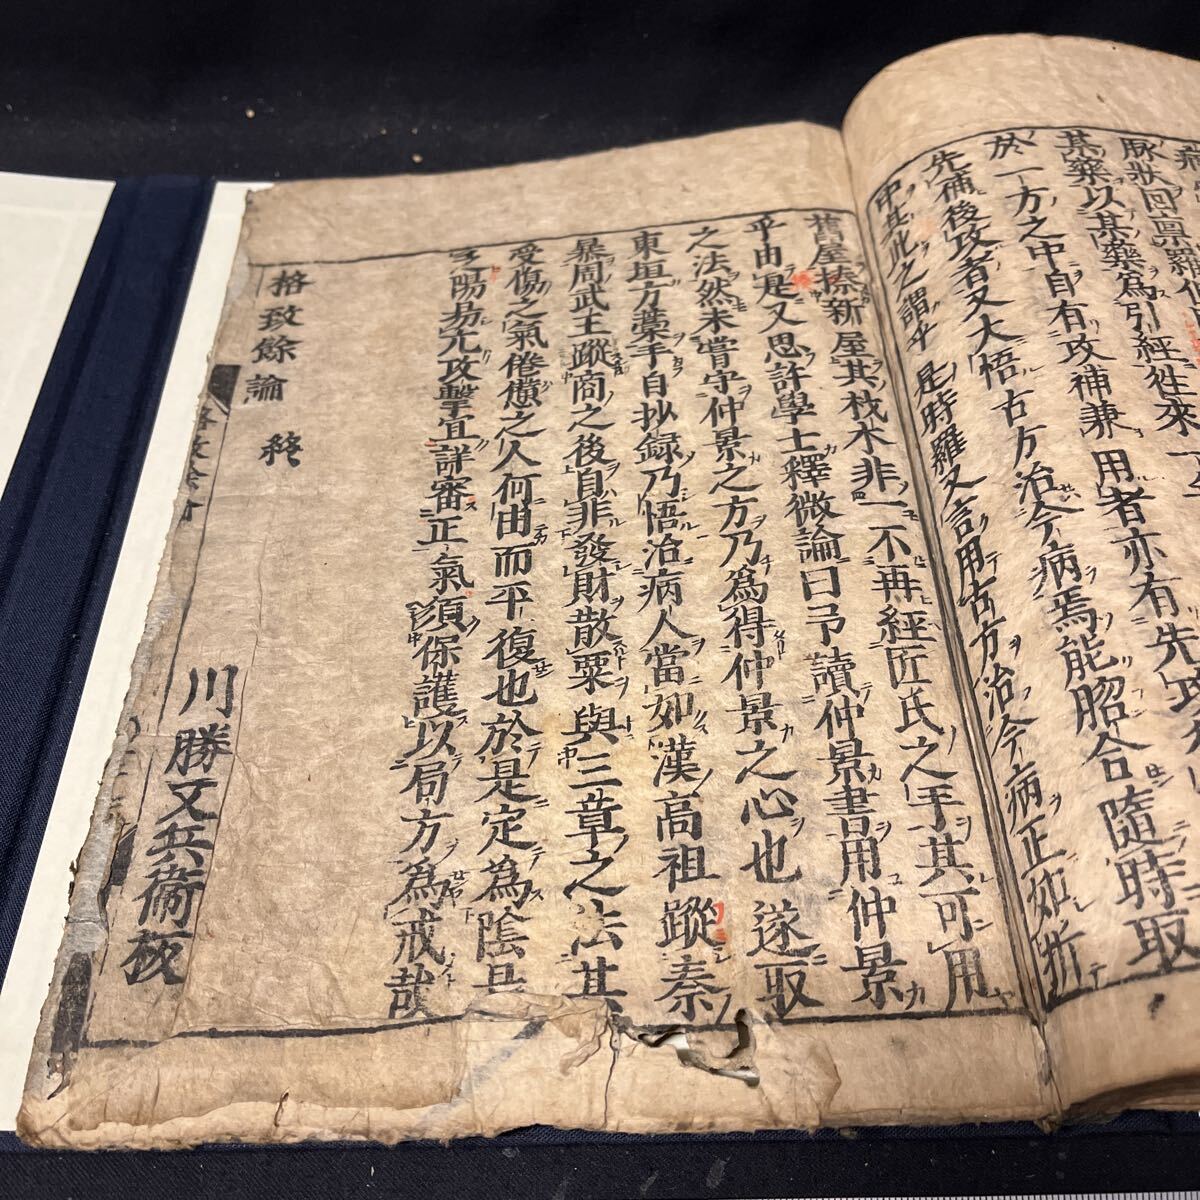 脉狀回禀羅
其藥以其藥爲引經徃來
於一方之中自有攻補兼用者亦有先攻
先補後攻者又大悟古方治今病焉能脗合隨時取
中其此之謂乎是時羅又言用古方治今病正如折
舊屋揍新屋其材木非一不再經匠氏之手其可用
乎由是又思許學士釋微論曰予讀仲景書用仲景
之法然未嘗守仲景之方乃爲得仲景之心也遂取
東垣方藁手自抄録乃悟治病人當如漢高祖蹤秦
暴周武王蹤商之後自非發財散粟與三章之法其
受傷之氣倦憊之人何由而平復也於是定為陰昜
乏陽易亢攻擊宜詳審正氣須保護以局方為戒哉
格致餘論 終
川勝又兵衞板
格致餘論